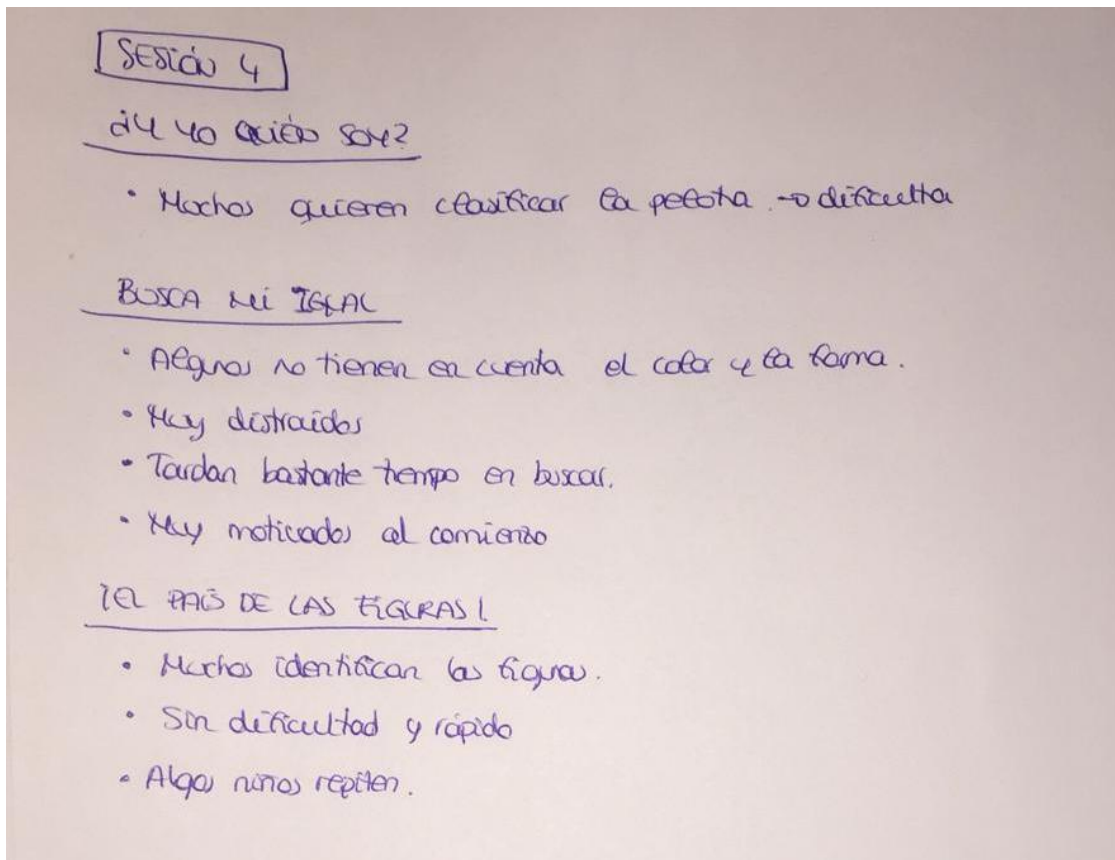 SESIÓN 4
¿Y YO QUIÉN SOY?
• Muchos quieren clasificar la pelota → dificulta
BUSCA MI IGUAL
• Algunos no tienen en cuenta el color y la forma.
• Muy distraídos
• Tardan bastante tiempo en buscar.
• Muy motivados al comienzo
¡EL PAÍS DE LAS FIGURAS!
• Muchos identifican las figuras.
• Sin dificultad y rápido
• Algos niños repiten.